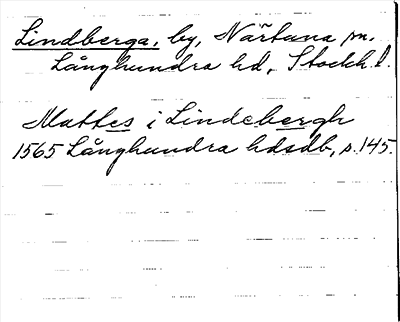 Lindberga, by, Närtuna sn.
Långhundra hd, Stockh. l.
Mattes i Lindebergh
1565 Långhundra hdsdb, s. 145.